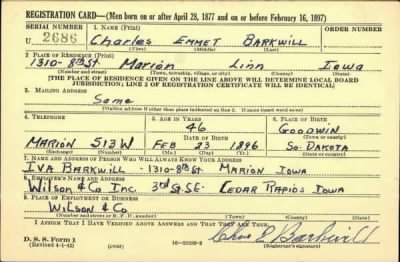 REGISTRATION CARD—(Men born on or after April 28, 1877 and on or before February 16, 1897)
SERIAL NUMBER 1. NAME (Print) ORDER NUMBER
U 2686 Charles EMMET BARKWILL
(First) (Middle) (Last)
2. PLACE OF RESIDENCE (Print)
1310-8th St. Marion Linn Iowa
(Number and street) (Town, township, village, or city) (County) (State)
[THE PLACE OF RESIDENCE GIVEN ON THE LINE ABOVE WILL DETERMINE LOCAL BOARD
JURISDICTION; LINE 2 OF REGISTRATION CERTIFICATE WILL BE IDENTICAL]
3. MAILING ADDRESS
Same
[Mailing address if other than place indicated on line 2. If same insert word same]
4. TELEPHONE 5. AGE IN YEARS 6. PLACE OF BIRTH
46 GOODWIN
DATE OF BIRTH (Town or county)
MARION 513W FEB 23 1896 SO. DAKOTA
(Exchange) (Number) (Mo.) (Day) (Yr.) (State or country)
7. NAME AND ADDRESS OF PERSON WHO WILL ALWAYS KNOW YOUR ADDRESS
IVA BARKWILL -1310-8th St MARION IOWA
8. EMPLOYER'S NAME AND ADDRESS
WILSON & CO INC. 3rd St. SE. CEDAR RAPIDS IOWA
9. PLACE OF EMPLOYMENT OR BUSINESS
WILSON & CO
(Number and street or R. F. D. number) (Town) (County) (State)
I AFFIRM THAT I HAVE VERIFIED ABOVE ANSWERS AND THAT THEY ARE TRUE.
D. S. S. Form 1 Chas E Barkwill
(Revised 4-1-42) (over) (Registrant's signature)